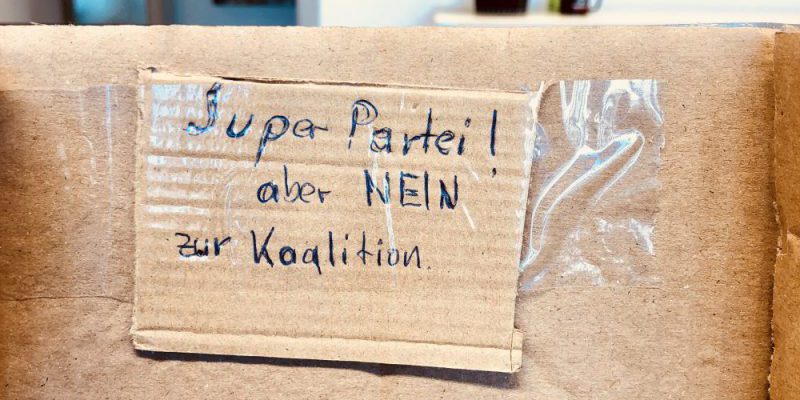 Super Partei!
aber NEIN
zur Koalition.